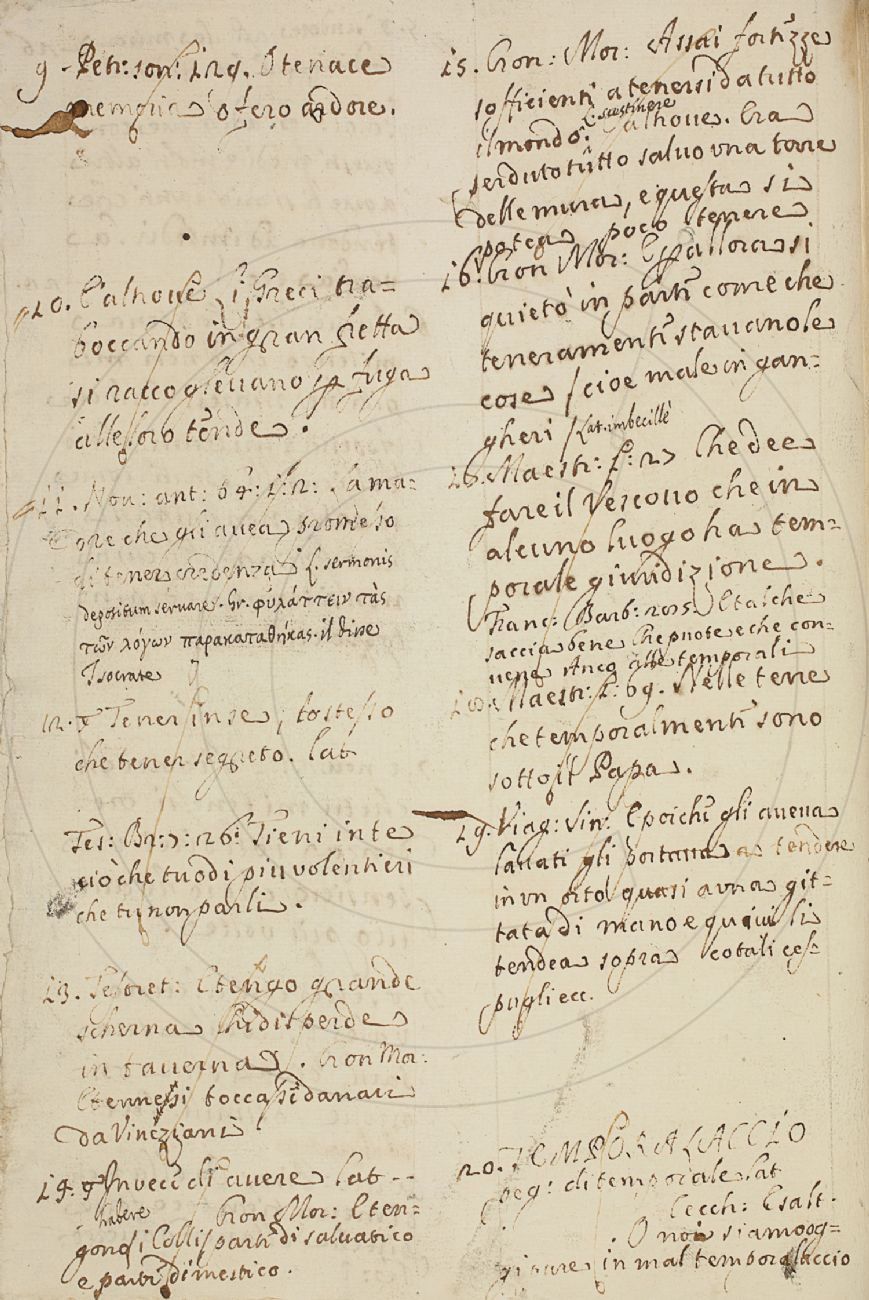 9. Petr: son: 129. O tenace
memoria o fero ardore.
10. Calhoue. i Greci tra=
boccando in gran fretta
si raccoglievano per fuga
alle loro tende.
11. Nou: ant: 64: f: 2: la ma=
che gli avea promesso
di tener credenza. f. sermonis
depositum servare. Gr. φυλάττειν τὰς
τῶν λόγων παρακαταθήκας. il disse
Isocrate
12. Tener in se, lo stesso
che tener segreto. lat
Tes: Br: 7: 26: Tieni in te
ciò che tu odi piu volentieri
che tu non parli.
13. Tesoret: E tengo grande
scherna Chi dispende
in taverna. Cron Mor:
E tennesi tocca di danari
da Vineziani.
14. Invece di avere lat - -
habere Cron Mor: E ten=
gono i Colli parti di salvatico
e parti dimestico.
15. Cron: Mor: Assai fortezze
sofficienti a tenersi da tutto
il mondo. L. sustinere Calhoue. Era
perduto tutto salvo una torre
delle mura, e questa si
potea poco tenere
16. Cron Mor: E per allora si
quietò in parti come che
teneramenti stavano le
cose / cioe male in gan=
gheri / Lat. imbecillè
Maestr: f: 27 Che dee
fare il Vescovo che in
alcuno luogo ha tem=
porale giuridizione.
Franc: Barb: 205. E tal che
faccia bene Che puote e che con=
vene Anco alle temporali
Maestr: f: 69. Nelle terre
che temporalmenti sono
sotto il Papa.
19. Viag: Sin: E poichè gli aveva
lavati gli portava a tendere
in un orto quasi a una git=
tata di mano e quivi li
tendea sopra cotali ces=
pugli ecc.
20. TEMPORALACCIO
peg: di temporale lat
Cecch: Esalt.
O noi siamo og=
gi in mal temporalaccio